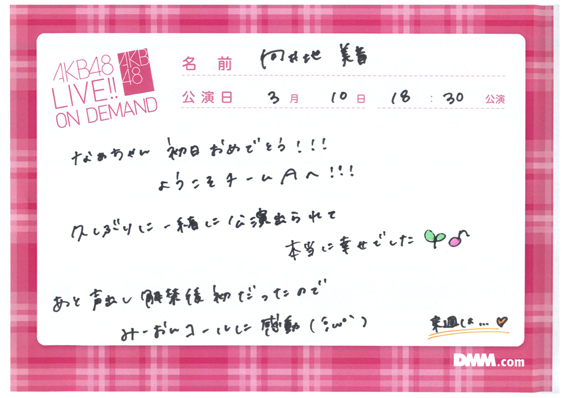 AKB48
LIVE!!
ON DEMAND
AKB
48
名前 向井地 美音
公演日 3月 10日 18:30 公演
なぁちゃん 初日おめでとう!!!
ようこそチームAへ!!!
久しぶりに一緒に公演出られて
本当に幸せでした
あと声出し解禁後初だったので
みーおんコールに感動(;ω;)
来週は...
DMM.com